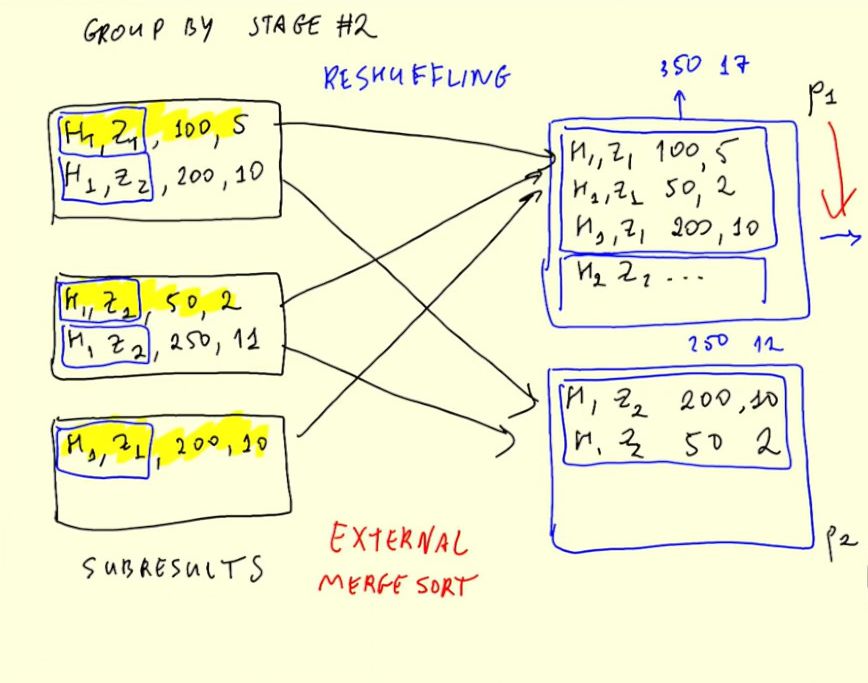 GROUP BY STAGE #2
RESHUFFLING
350 17
P1
H1, Z1, 100, 5
H1, Z2, 200, 10
H1, Z1, 50, 2
H1 Z2, 250, 11
H1, Z1, 200, 10
SUBRESULTS
EXTERNAL
MERGE SORT
H1, Z1 100, 5
H1, Z1 50, 2
H1, Z1 200, 10
H2 Z2 ...
250 12
H1 Z2 200, 10
H1 Z2 50 2
P2